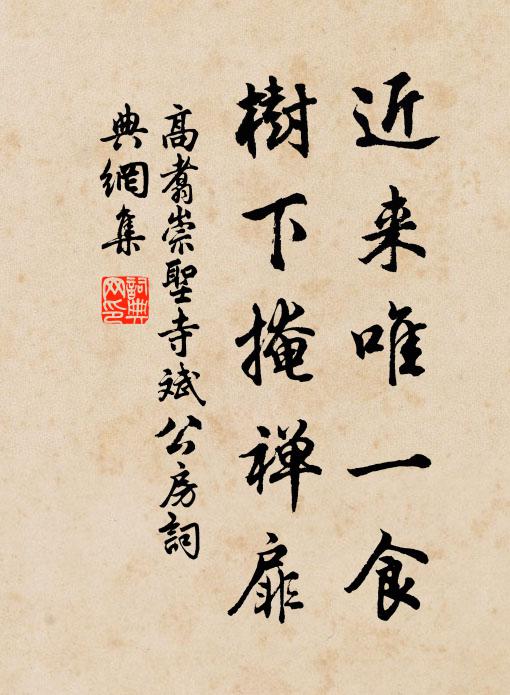 近来唯一食
樹下掩禅扉
高翥崇聖寺斌公房詞
典網集
詞典网印